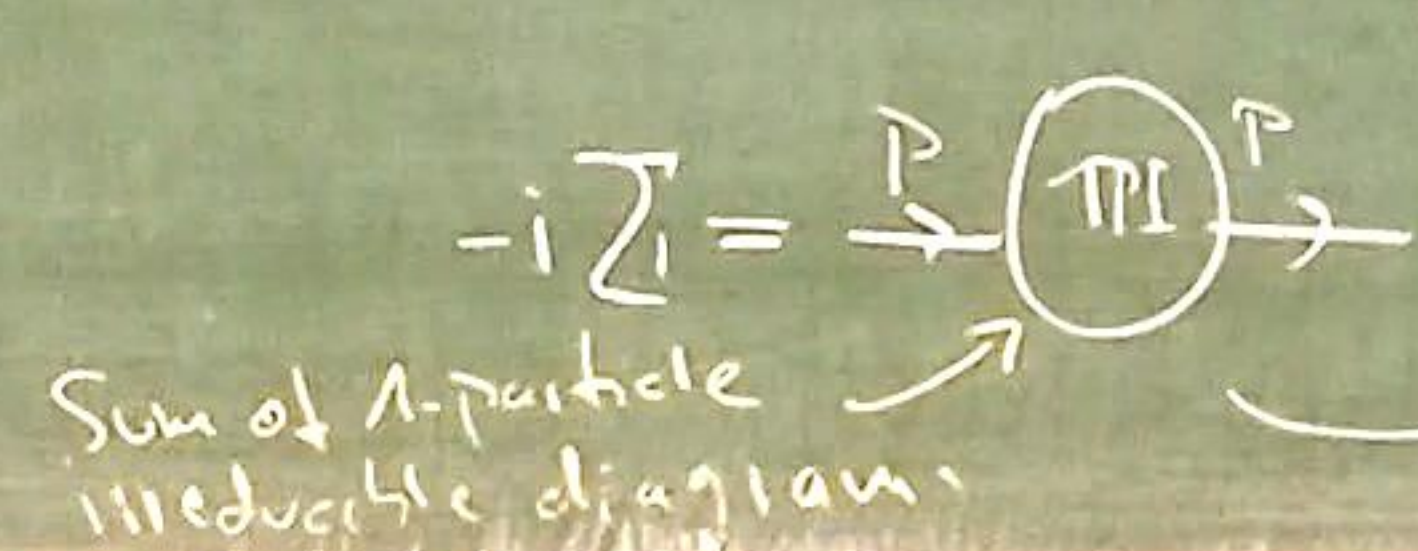 P P
-iΣ = 1PI
Sum of 1-particle
irreducible diagrams